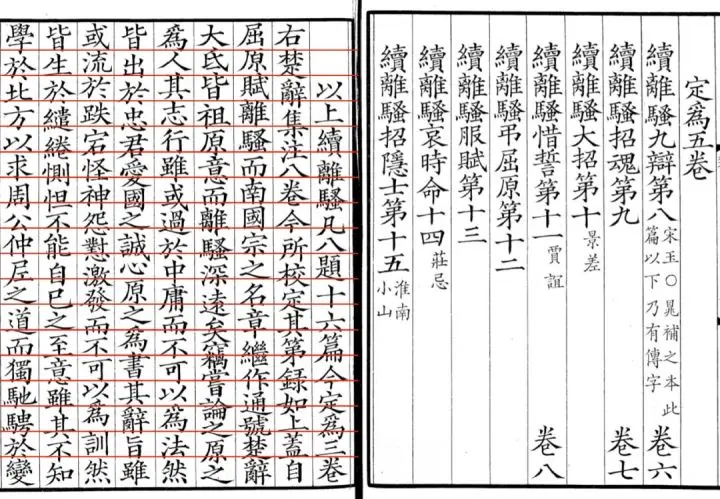 定爲五卷
續離騷九辯第八 宋玉〇晁補之本此篇以下乃有傳字 卷六
續離騷招魂第九 卷七
續離騷大招第十 景差
續離騷惜誓第十一 賈誼 卷八
續離騷弔屈原第十二
續離騷服賦第十三
續離騷哀時命十四 莊忌
續離騷招隱士第十五 淮南小山
以上續離騷凡八題十六篇今定爲三卷
右楚辭集注八卷今所校定其第録如上蓋自
屈原賦離騷而南國宗之名章繼作通號楚辭
大氐皆祖原意而離騷深遠矣竊嘗論之原之
爲人其志行雖或過於中庸而不可以爲法然
皆出於忠君愛國之誠心原之爲書其辭旨雖
或流於跌宕怪神怨懟激發而不可以爲訓然
皆生於繾綣惻怛不能自已之至意雖其不知
學於北方以求周公仲尼之道而獨馳騁於變